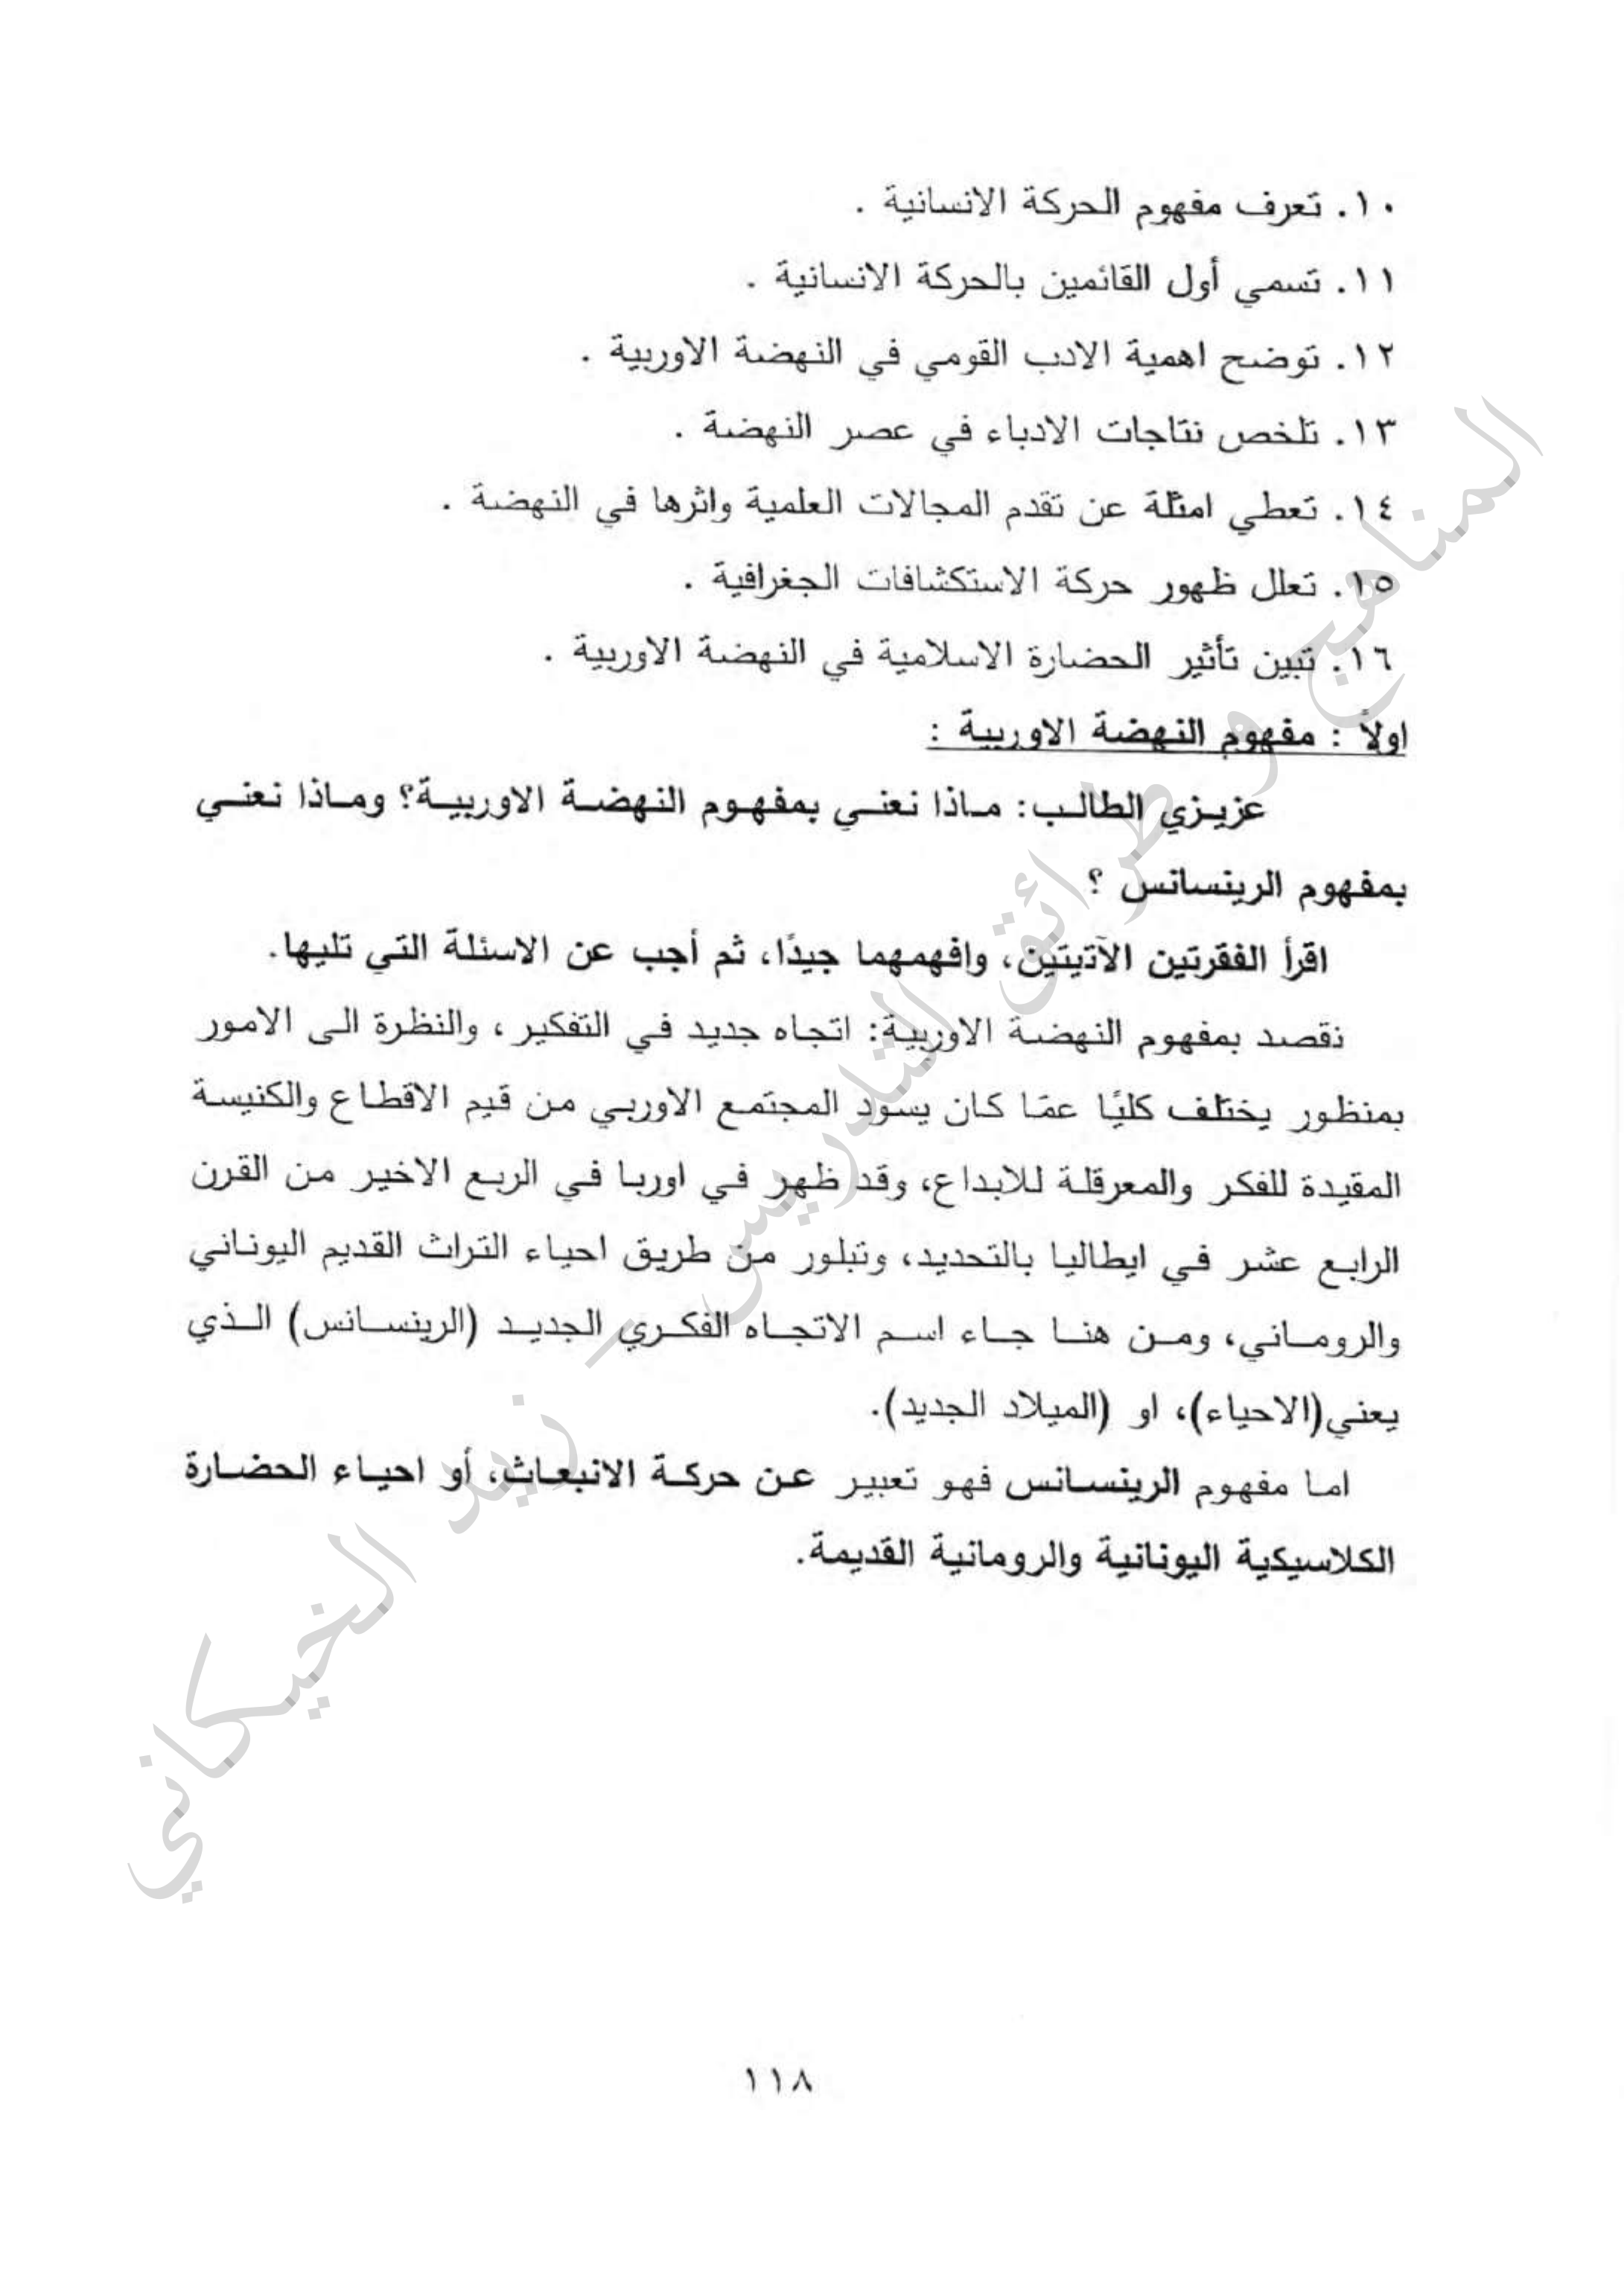 ١٠. تعرف مفهوم الحركة الانسانية .
١١. تسمي أول القائمين بالحركة الانسانية .
١٢. توضح اهمية الادب القومي في النهضة الاوربية .
١٣. تلخص نتاجات الادباء في عصر النهضة .
١٤. تعطي امثلة عن تقدم المجالات العلمية واثرها في النهضة .
١٥. تعلل ظهور حركة الاستكشافات الجغرافية .
١٦. تبين تأثير الحضارة الاسلامية في النهضة الاوربية .
اولاً : مفهوم النهضة الاوربية :
عزيزي الطالب: ماذا نعني بمفهوم النهضة الاوربية؟ وماذا نعني
بمفهوم الرينسانس ؟
اقرأ الفقرتين الآتيتين، وافهمهما جيدًا، ثم أجب عن الاسئلة التي تليها.
نقصد بمفهوم النهضة الاوربية: اتجاه جديد في التفكير ، والنظرة الى الامور
بمنظور يختلف كليًا عمّا كان يسود المجتمع الاوربي من قيم الاقطاع والكنيسة
المقيدة للفكر والمعرقلة للابداع، وقد ظهر في اوربا في الربع الاخير من القرن
الرابع عشر في ايطاليا بالتحديد، وتبلور من طريق احياء التراث القديم اليوناني
والروماني، ومن هنا جاء اسم الاتجاه الفكري الجديد (الرينسانس) الذي
يعني(الاحياء)، او (الميلاد الجديد).
اما مفهوم الرينسانس فهو تعبير عن حركة الانبعاث، أو احياء الحضارة
الكلاسيكية اليونانية والرومانية القديمة.
المناهج و طرائق التدريس – زيد الخيكاني
١١٨